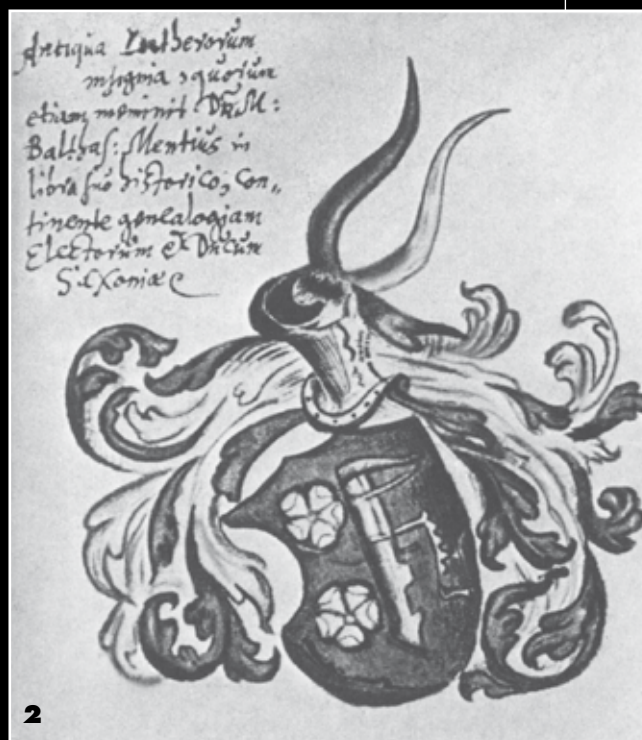 Antiqua Lutherorum
insignia, quorum
etiam meminit Dn. M:
Balthas: Mentius in
libro suo historico, con„
tinente genealogiam
Electorum et Ducum
Saxoniae
2